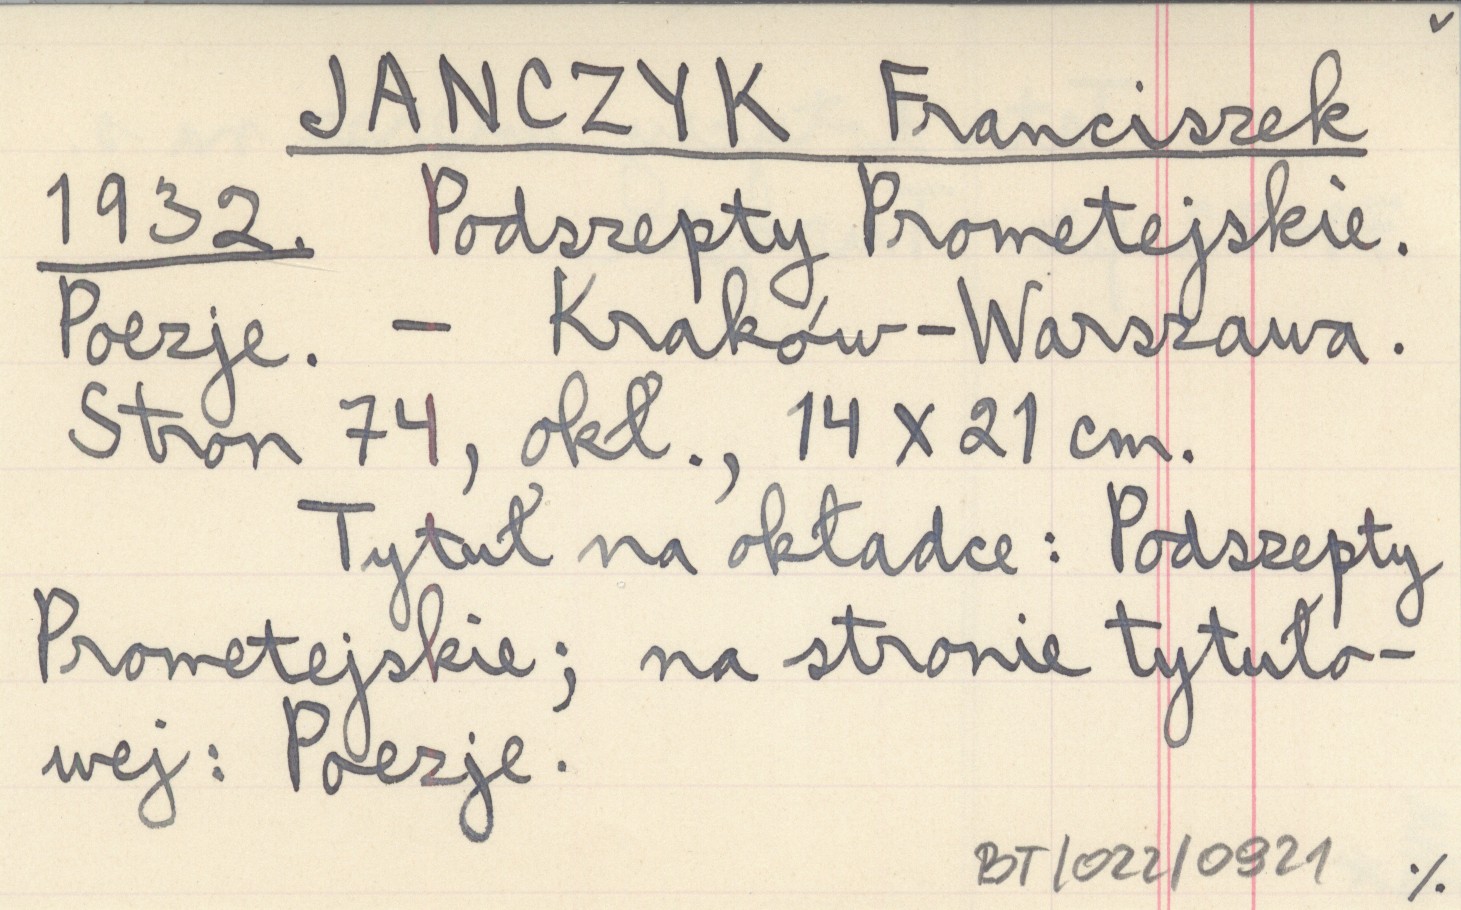 JANCZYK Franciszek
1932. Podszepty Prometejskie.
Poezje. – Kraków–Warszawa.
Stron 74, okł., 14 x 21 cm.
Tytuł na okładce: Podszepty
Prometejskie; na stronie tytuło-
wej: Poezje.
BT/022/0921 ./.